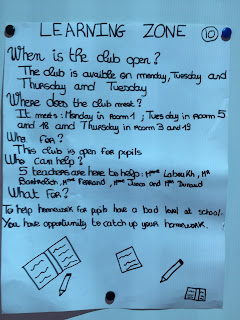 LEARNING ZONE
10
When is the club open?
The club is avaible on monday, Tuesday and
Thursday and Tuesday
Where does the club meet?
It meets: Monday in Room 1; Tuesday in Room 5
and 18 and Thursday in Room 3 and 19
Who For?
This club is open for pupils
Who can help?
5 teachers are here to help: Mme Labrakh, Mr
, Mme Ferrand, Mme and Mme Durand
What For?
To help homework for pupils have a bad level at school.
You have opportunity to catch up your homework.